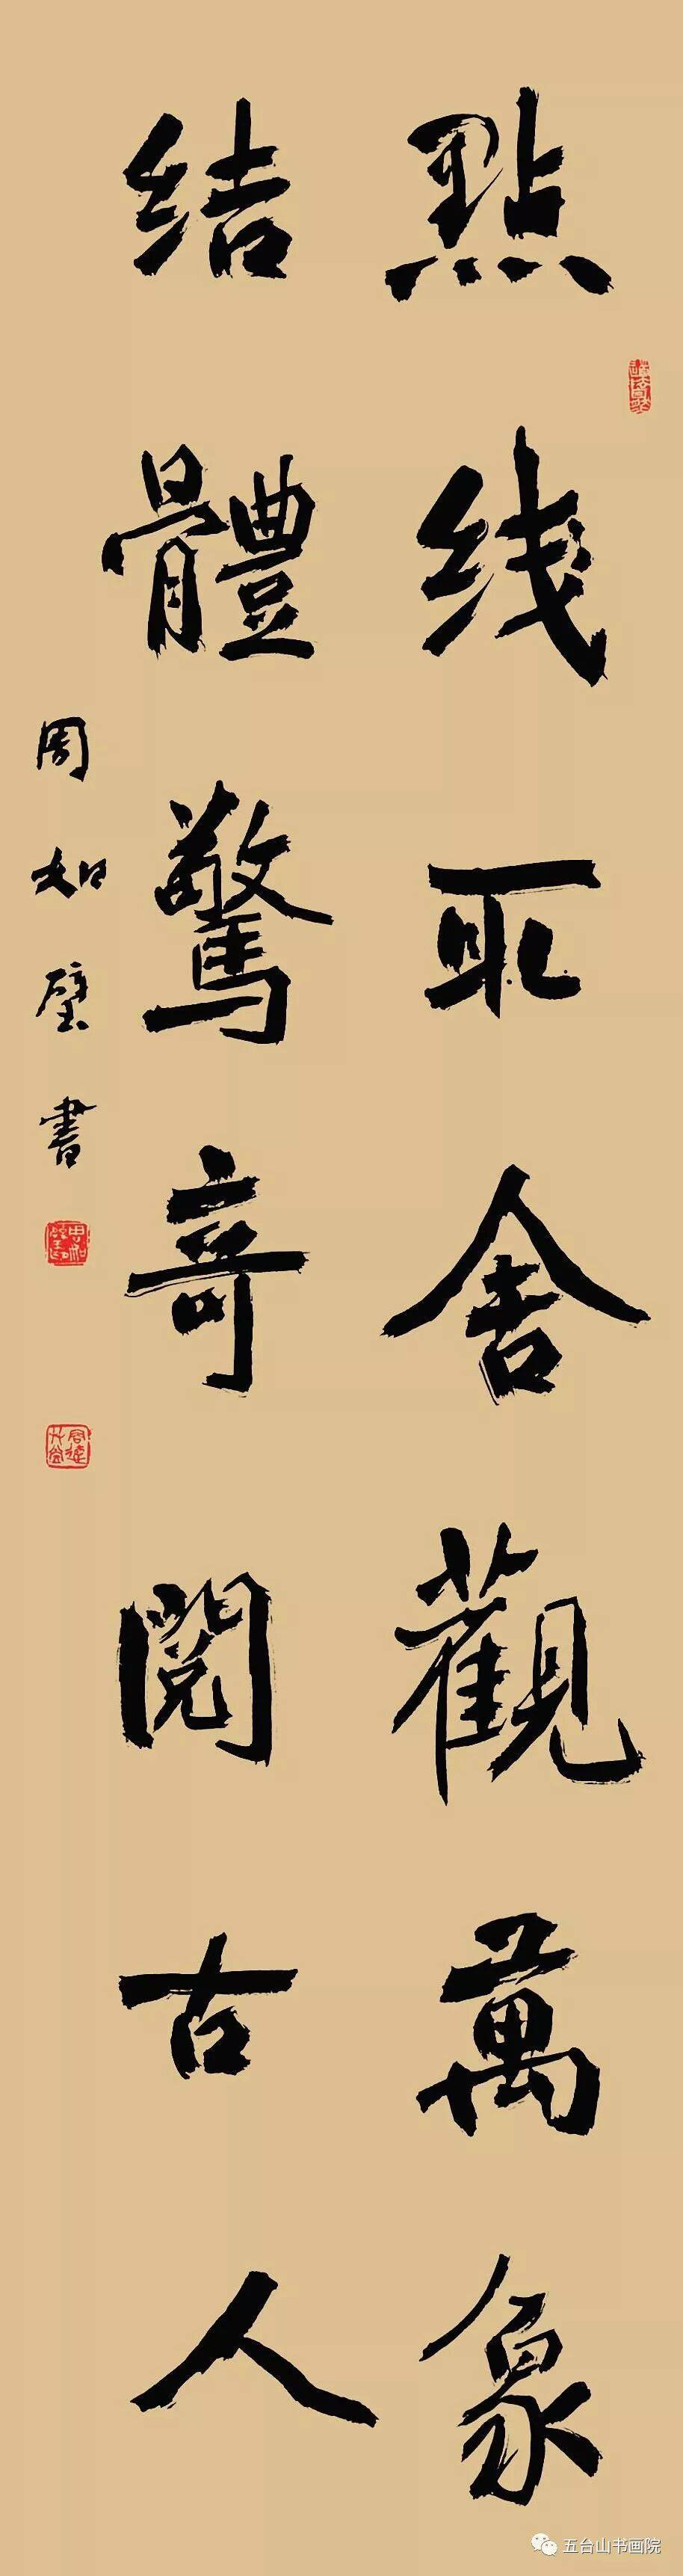 點线取舍觀萬象
结體驚奇閱古人
周如璧書
五台山书画院